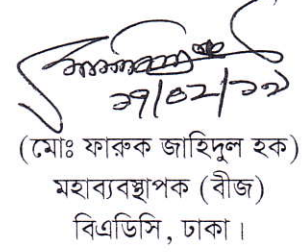 (মোঃ ফারুক জাহিদুল হক)
মহাব্যবস্থাপক (বীজ)
বিএডিসি, ঢাকা।